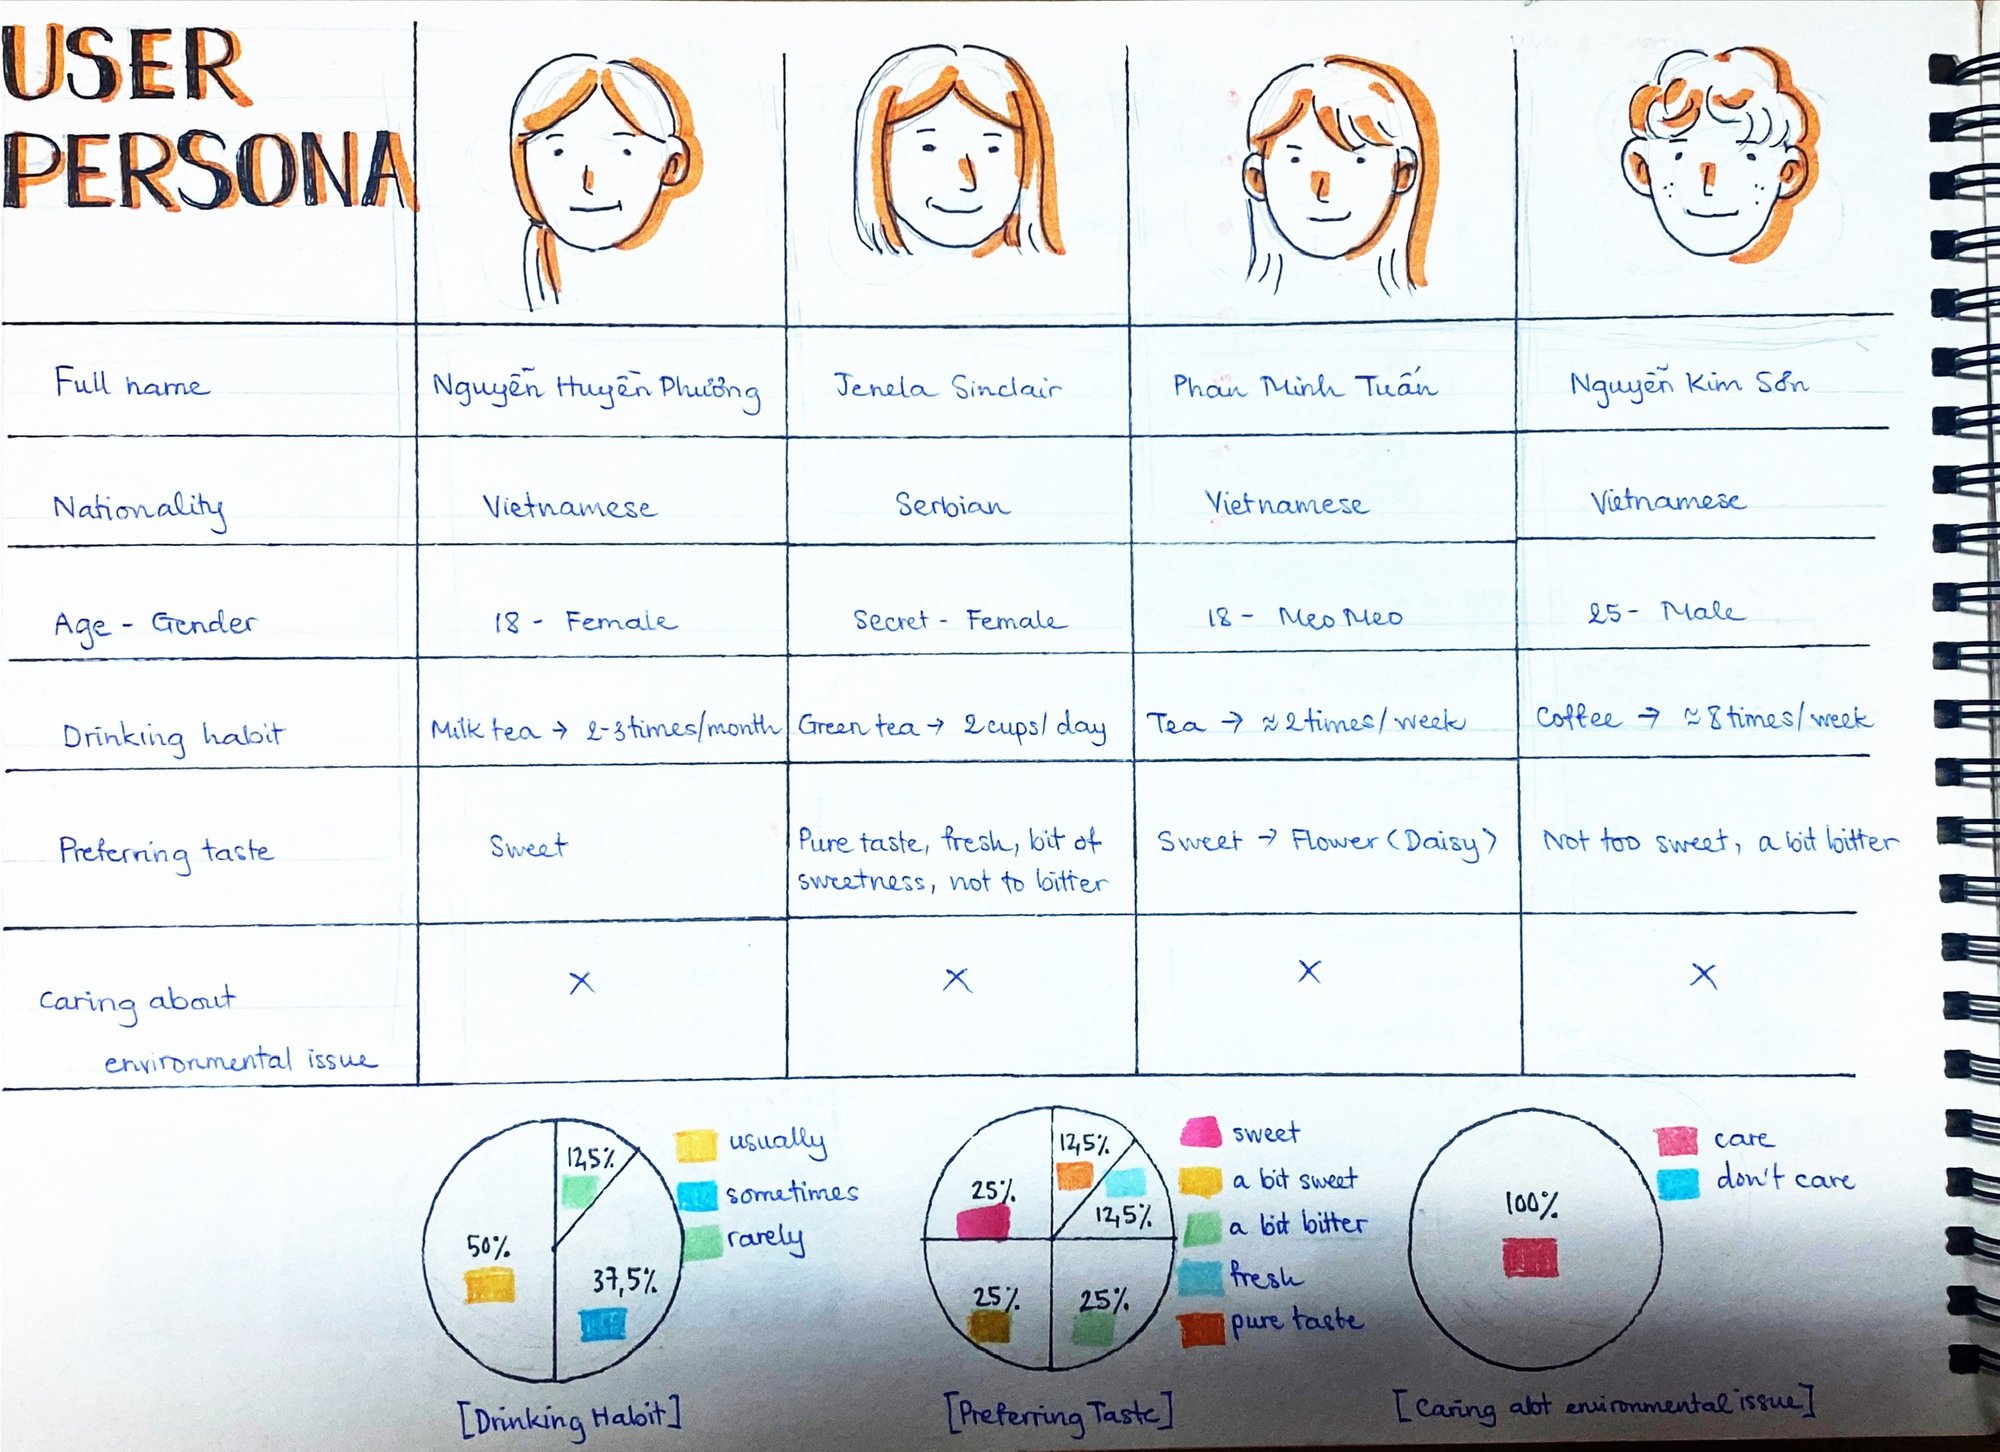 USER
PERSONA
Full name
Nguyễn Huyền Phương
Jenela Sinclair
Phan Minh Tuấn
Nguyễn Kim Sơn
Nationality
Vietnamese
Serbian
Vietnamese
Vietnamese
Age - Gender
18 - Female
Secret - Female
18 - Meo Meo
25 - Male
Drinking habit
Milk tea → 2-3 times/month
Green tea → 2 cups/day
Tea → ≈ 2 times/week
Coffee → ≈ 8 times/week
Preferring taste
Sweet
Pure taste, fresh, bit of
sweetness, not to bitter
Sweet → Flower (Daisy)
Not too sweet, a bit bitter
Caring about
environmental issue
X
X
X
X
12,5%
50%
37,5%
usually
sometimes
rarely
[Drinking Habit]
12,5%
25%
12,5%
25%
25%
sweet
a bit sweet
a bit bitter
fresh
pure taste
[Preferring Taste]
100%
care
don't care
[Caring abt environmental issue]